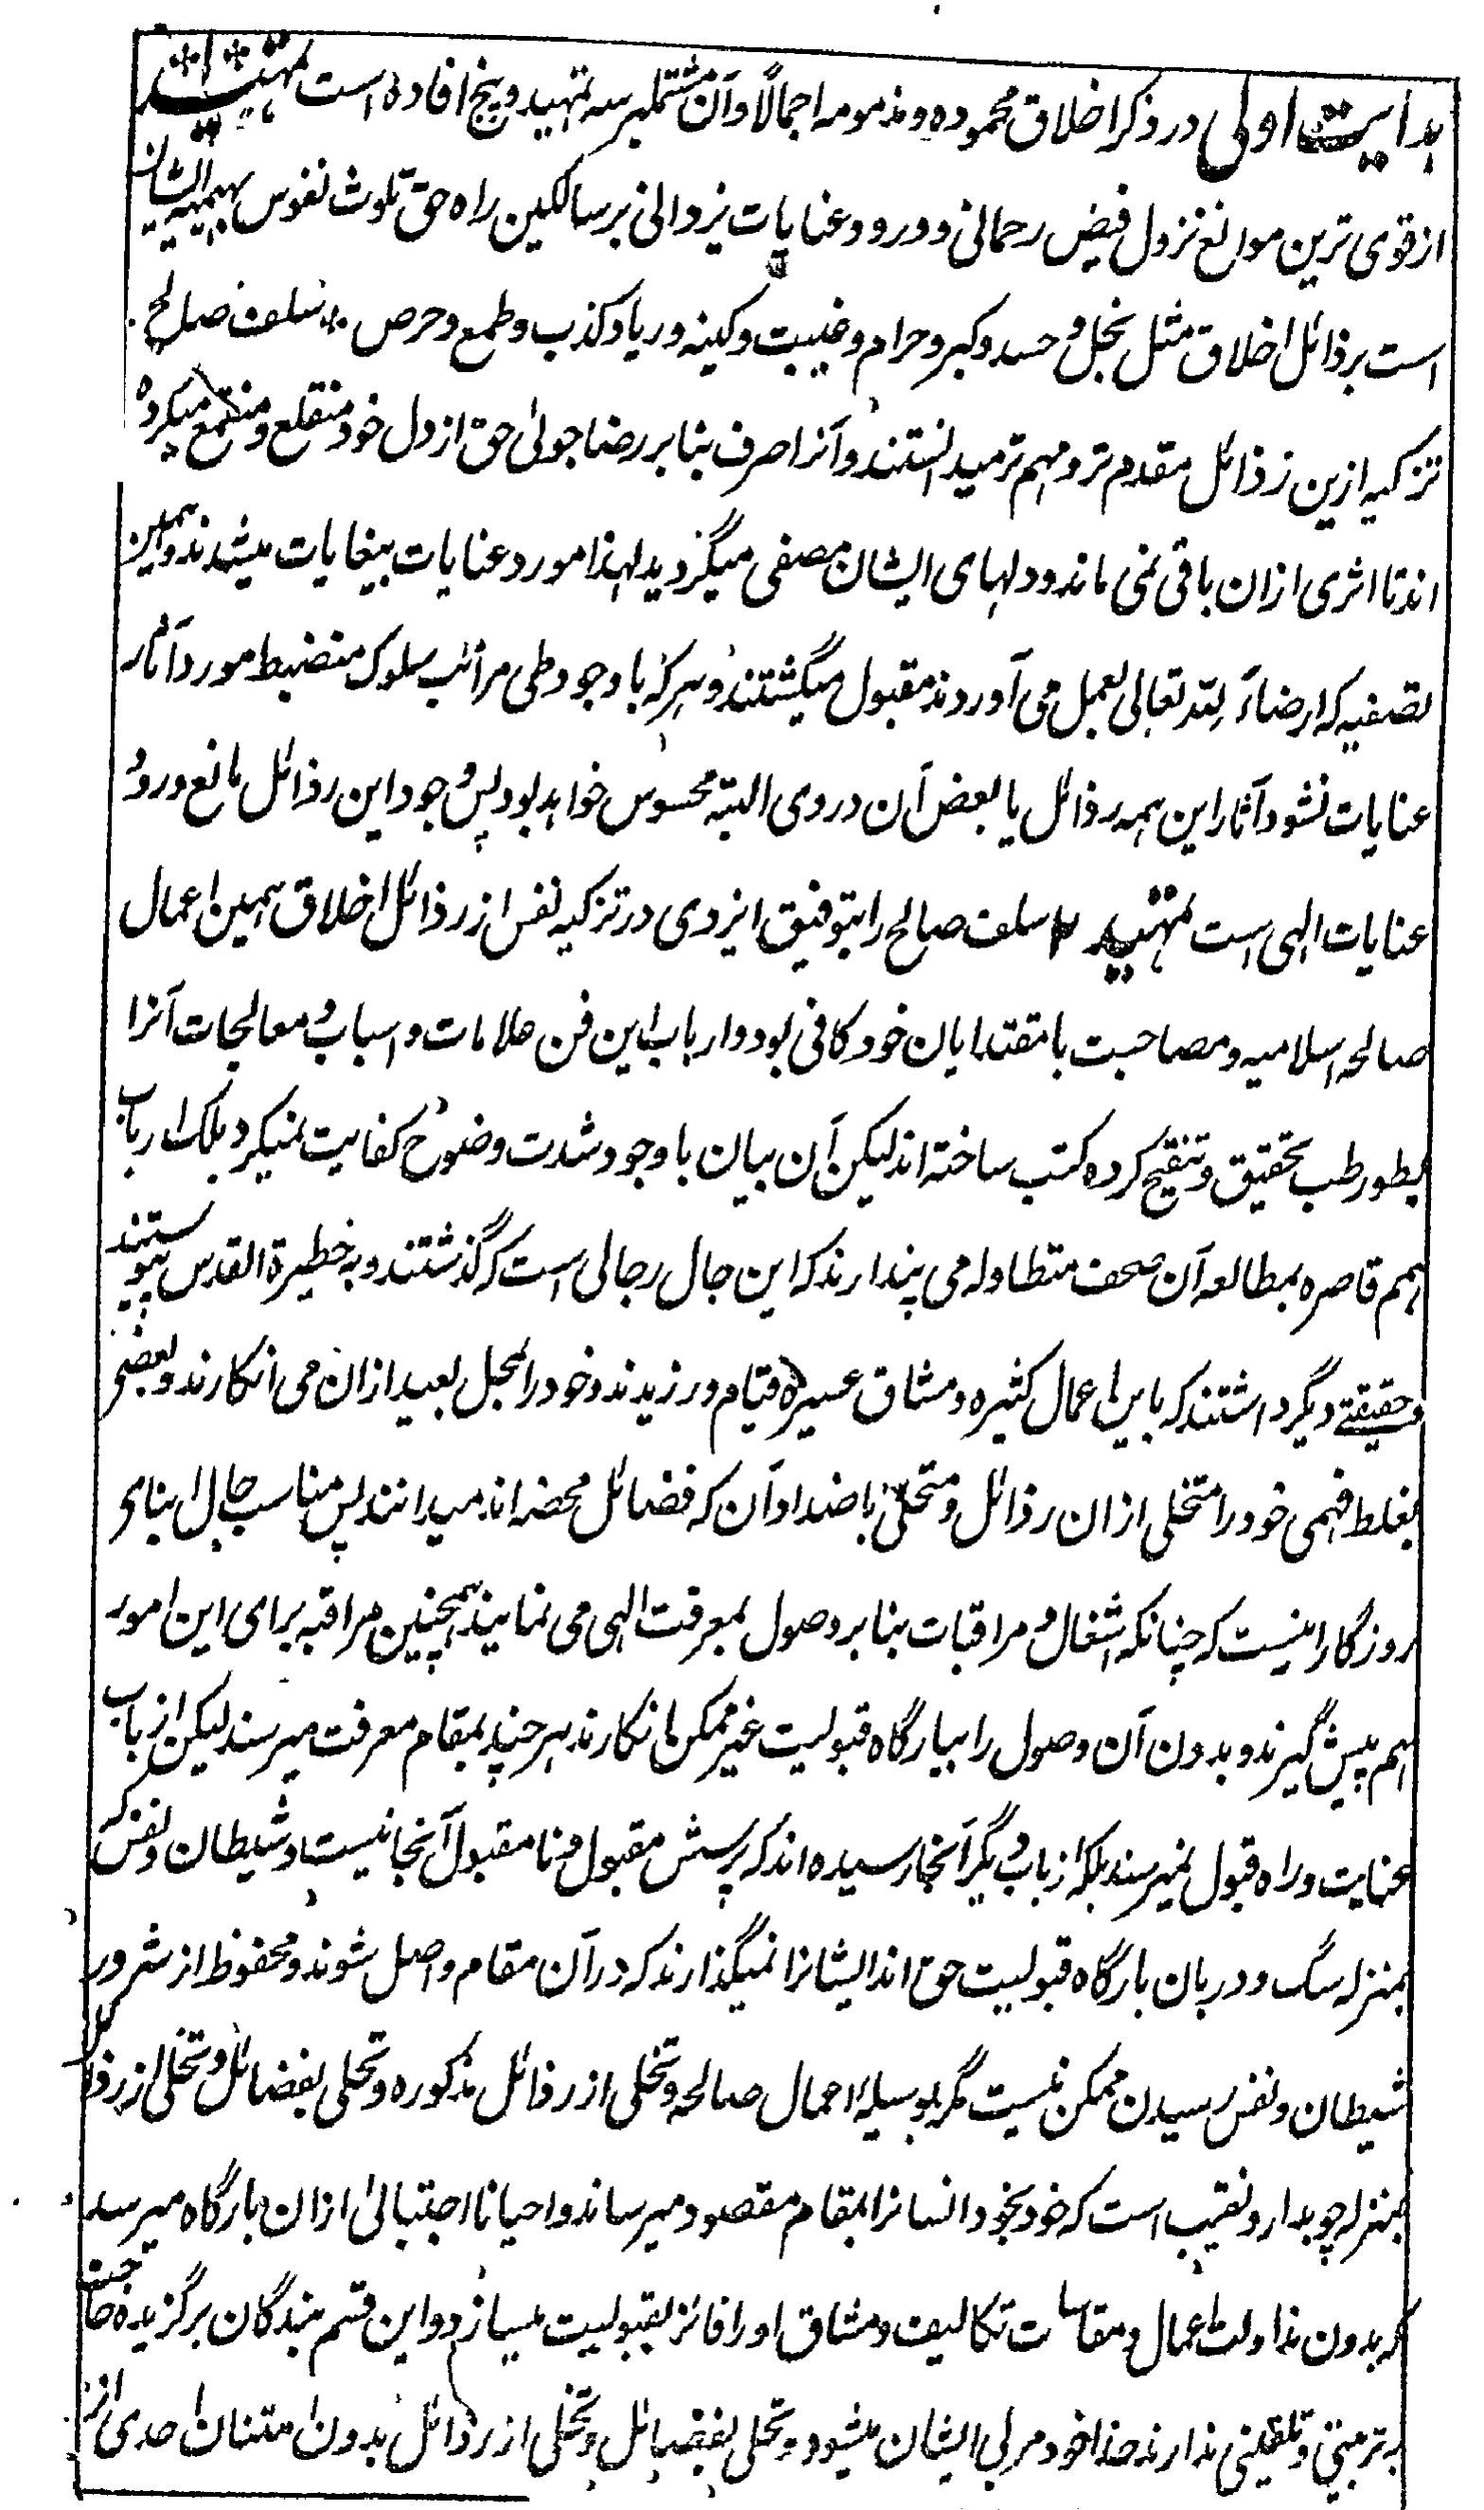 هدایت اولی در ذکر اخلاق محموده و مذمومه اجمالاً و آن مشتملبر سه تمهید و پنج افاده است تمهید ۱
از قوی ترین موانع نزول فیض رحمانی و ورود عنایات یزدانی بر سالکین راه حق تلوث نفوس بهیمیه ایشان
است برذائل اخلاق مثل بخل و حسد و کبر و حرام و غیبت و کینه و ریا و کذب و طمع و حرص سلف صالح
تزکیه ازین رذائل مقدم تر و مهم تر میدانستند و آنرا صرف بنابر رضا جوئی حق از دل خود منقلع و منقمع میکرده
اند تا اثری ازان باقی نمی ماند و دلهای ایشان مصفی میگردید لهذا مورد عنایات بیغایات میشدند و بهمین
تصفیه که ارضاءً لله تعالی بعمل می آوردند مقبول میگشتند و هرکه با وجود طی مراتب سلوک منضبط مورد آثار
عنایات نشود آثار این همه رذائل یا بعض آن در وی البته محسوس خواهد بود پس وجود این رذائل مانع ورود
عنایات الهی است تمهید ۲ سلف صالح را بتوفیق ایزدی در تزکیه نفس از رذائل اخلاق همین اعمال
صالحه اسلامیه و مصاحبت با مقتدایان خود کافی بود و ارباب این فن علامات و اسباب و معالجات آنرا
بطور طب تحقیق و تنقیح کرده کتب ساخته اند لیکن آن بیان با وجود شدت وضوح کفایت نمیکرد بلکه ارباب
همم قاصره بمطالعه آن صحف متطاوله می پندارند که این حال رجالی است که گذشتند و به خطیرة القدس پیوستند
و حقیقتے دیگر داشتند که باین اعمال کثیره و مشاق عسیره قیام ورزیدند و خود را بمحل بعید ازان می انکارند و بعضی
بغلط فهمی خود را متخلی ازان رذائل و متحلی باضداد آن که فضائل محضه اند میدانند پس مناسب حال ابنای
روزگار اینست که چنانکه اشغال و مراقبات بنابر وصول بمعرفت الهی می نمایند همچنین مراقبه برای این امور
هم پیش گیرند و بدون آن وصول را ببارگاه قبولیت غیر ممکن انکارند هر چند بمقام معرفت میرسند لیکن از باب
عنایت و راه قبول نمیرسند بلکه از باب دیگر آنجا رسیده اند که پرسش مقبول و نا مقبول آنجا نیست و شیطان و نفس که
بمنزله سگ و دربان بارگاه قبولیت حق اند ایشانرا نمیگذارند که در آن مقام واصل شوند و محفوظ از شرور
شیطان و نفس رسیدن ممکن نیست مگر بوسیله اعمال صالحه و تخلی از رذائل مذکوره و تحلی بفضائل و تخلی از رذائل
بمنزله چوبدار و نقیب است که خود بخود انسانرا بمقام مقصود میرساند و احیانا اجتبائی ازان بارگاه میرسد
که بدون مذاولت اعمال و مقاسات تکالیف و مشاق او را فائز بقبولیت میسازد و این قسم بندگان برگزیده حاجت
به تربیتی و تلقینی ندارند خدا خود مربی ایشان میشود و تحلی بفضائل و تخلی از رذائل بدون امتنان احدی از